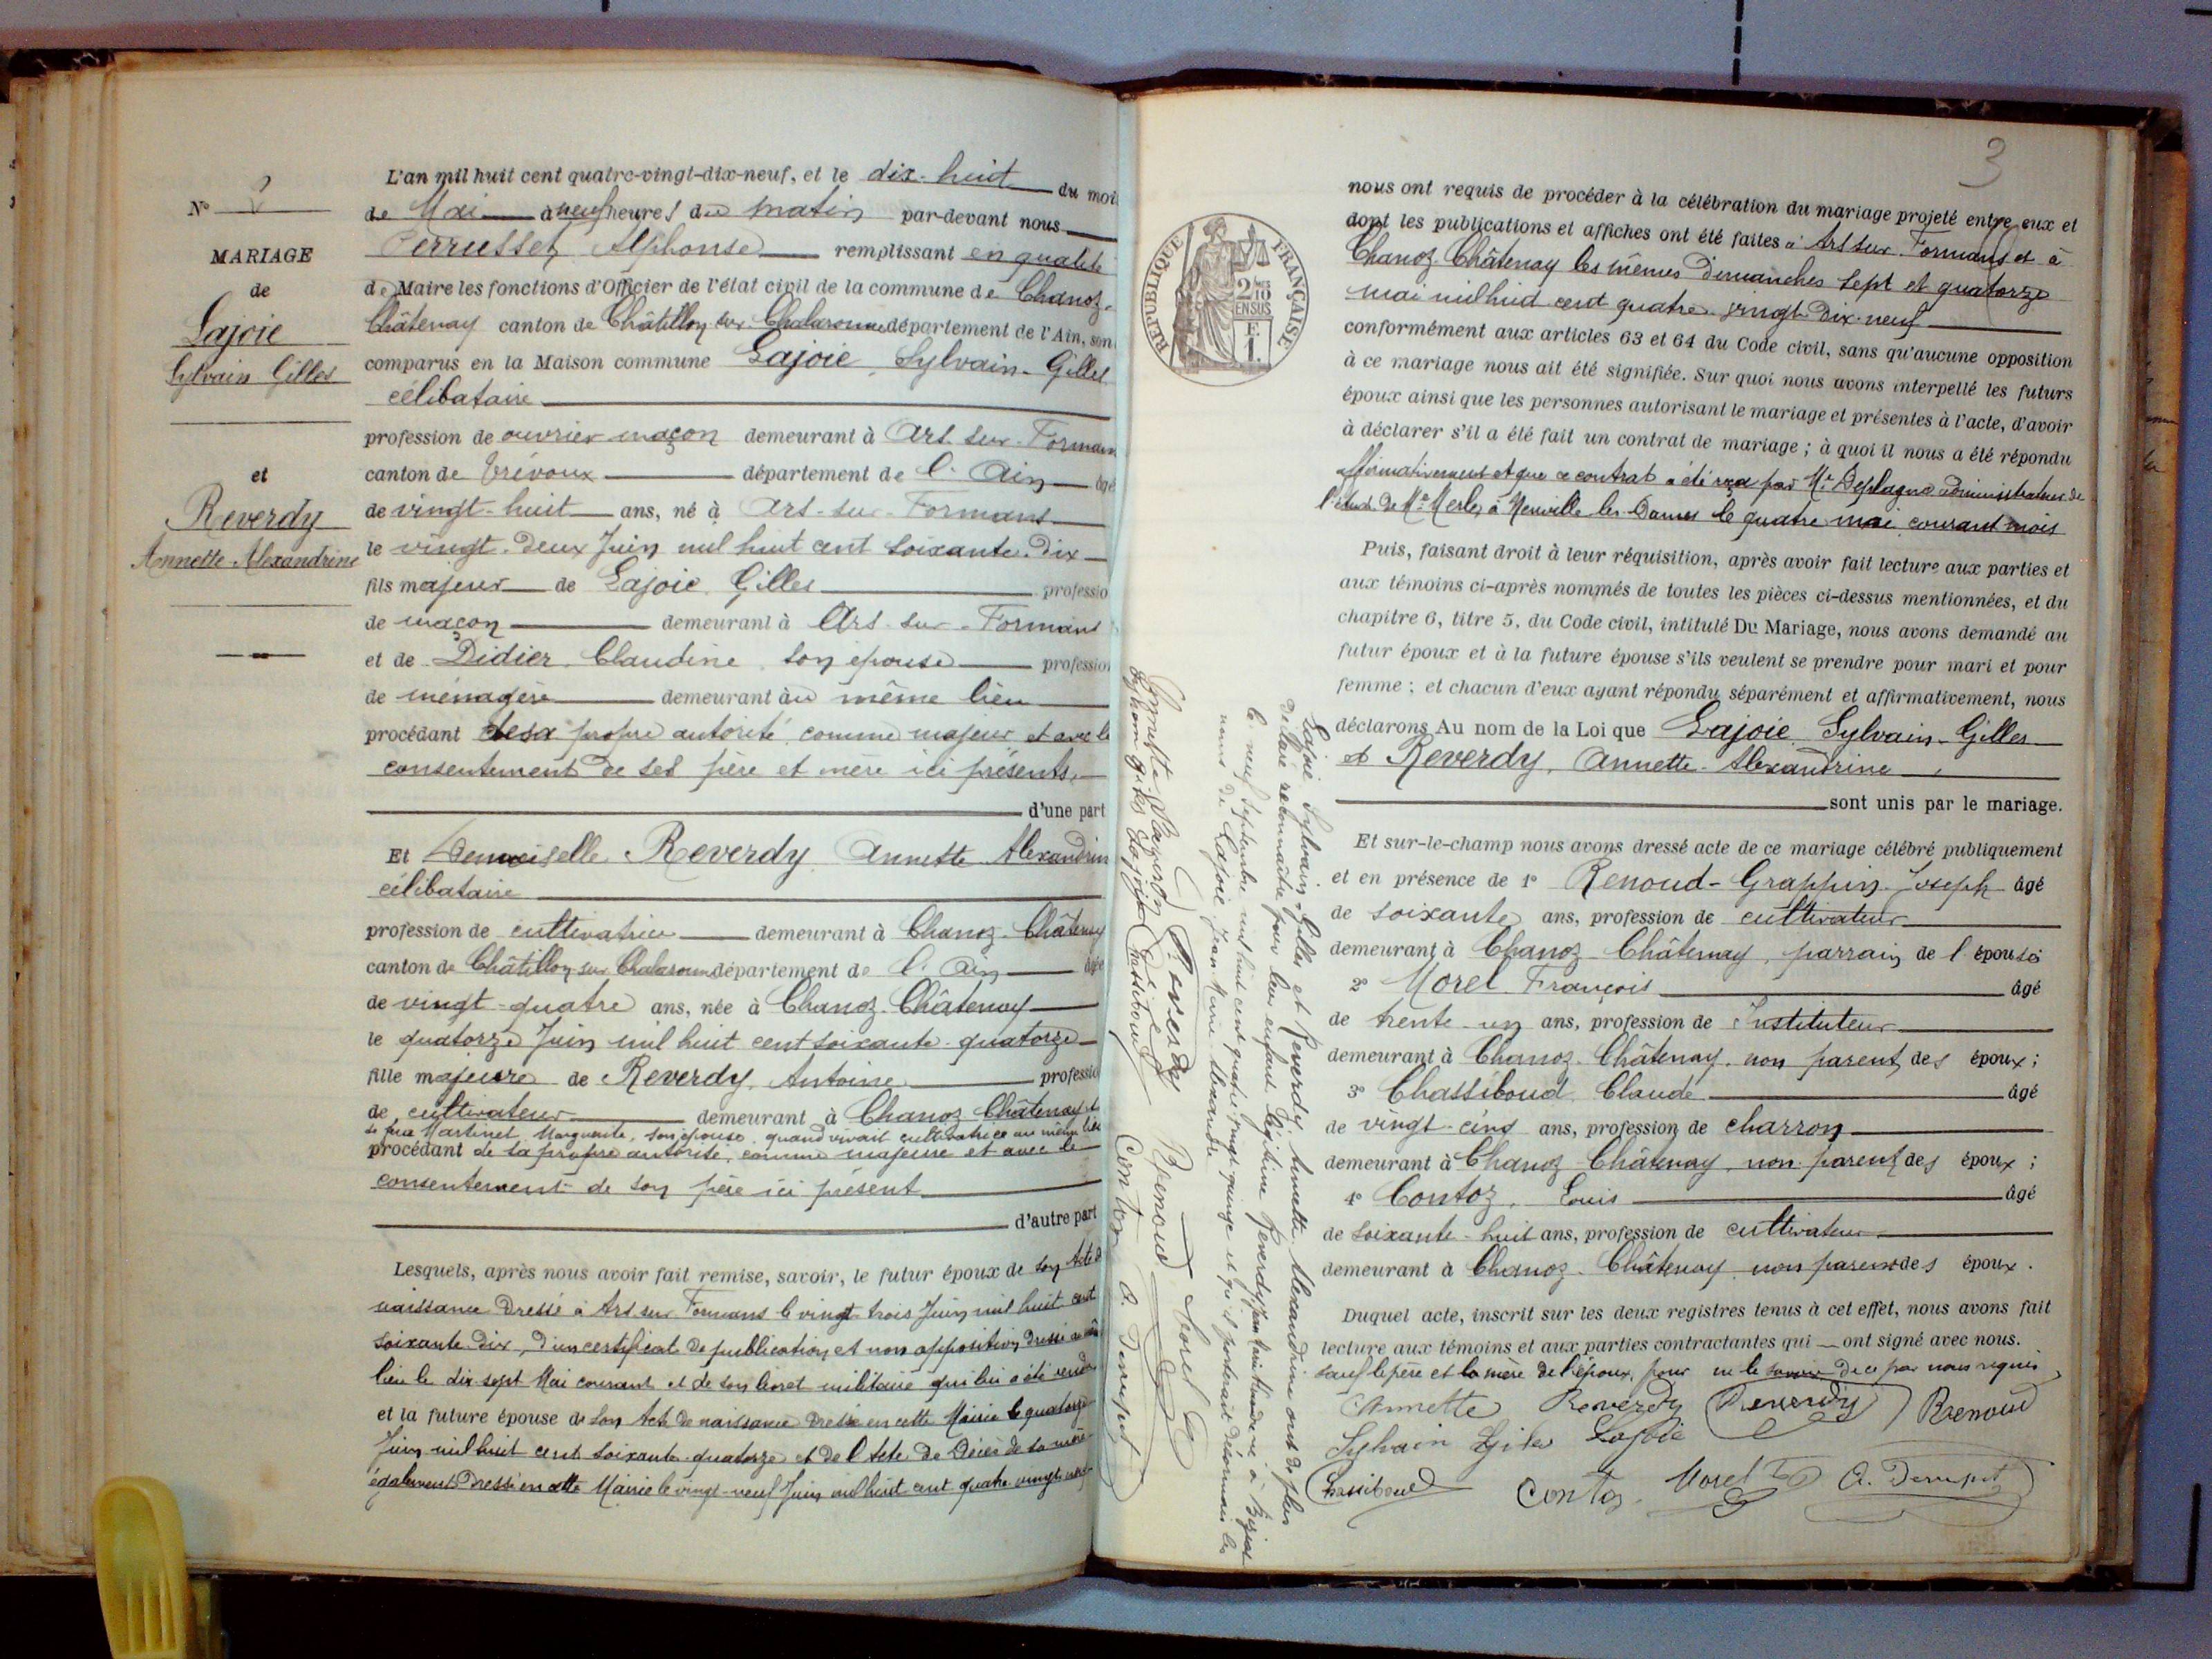 N° 2
MARIAGE
de
Lajoie
Sylvain Gilles
et
Reverdy
Annette Alexandrine
L'an mil huit cent quatre-vingt-dix-neuf, et le dix-huit du mois
de Mai à neuf heures du matin par-devant nous
Alphonse remplissant en qualité
de Maire les fonctions d'Officier de l'état civil de la commune de Chanoz-
Châtenay canton de Châtillon sur Chalaronne département de l'Ain, son
comparus en la Maison commune Lajoie, Sylvain-Gilles
célibataire
profession de ouvrier maçon demeurant à Ars-sur-Formans
canton de Trévoux département de l'Ain âgé
de vingt-huit ans, né à Ars-sur-Formans
le vingt-deux Juin mil huit cent soixante-dix
fils majeur de Lajoie, Gilles professio
de maçon demeurant à Ars-sur-Formans
et de Didier, Claudine, son épouse profession
de ménagère demeurant au même lieu
procédant de sa propre autorité comme majeur et avec le
consentement de ses père et mère ici présents,
d'une part
Et Demoiselle Reverdy, Annette Alexandrin
célibataire
profession de cultivatrice demeurant à Chanoz-Châtenay
canton de Châtillon-sur-Chalaronne département de l'Ain âgée
de vingt-quatre ans, née à Chanoz-Châtenay
le quatorze Juin mil huit cent soixante-quatorze
fille majeure de Reverdy, Antoine professio
de cultivateur demeurant à Chanoz Châtenay et
de feue Martinet Marguerite, son épouse, quand vivait cultivatrice au même lieu
procédant de sa propre autorité, comme majeure et avec le
consentement de son père ici présent
d'autre part
Lesquels, après nous avoir fait remise, savoir, le futur époux de son Acte de
naissance dressé à Ars sur Formans le vingt trois Juin mil huit cent
soixante-dix, d'un certificat de publication et non opposition dressé au même
lieu le dix-sept Mai courant et de son livret militaire qui lui a été rendu
et la future épouse de son Acte de naissance dressé en cette Mairie le quatorze
Juin mil huit cent soixante-quatorze et de l'Acte de Décès de sa mère
également dressé en cette Mairie le vingt-neuf Juin mil huit cent quatre vingt
3
RÉPUBLIQUE FRANÇAISE
2/10 EN SUS
1 F.
nous ont requis de procéder à la célébration du mariage projeté entre eux et
dont les publications et affiches ont été faites à Ars sur Formans et à
Chanoz Châtenay les mêmes Dimanches sept et quatorze
mai mil huit cent quatre-vingt-dix-neuf
conformément aux articles 63 et 64 du Code civil, sans qu'aucune opposition
à ce mariage nous ait été signifiée. Sur quoi nous avons interpellé les futurs
époux ainsi que les personnes autorisant le mariage et présentes à l'acte, d'avoir
à déclarer s'il a été fait un contrat de mariage ; à quoi il nous a été répondu
affirmativement et que ce contrat a été reçu par Me administrateur de
l'étude de Me Merle, à Neuville-les-Dames le quatre mai courant mois
Puis, faisant droit à leur réquisition, après avoir fait lecture aux parties et
aux témoins ci-après nommés de toutes les pièces ci-dessus mentionnées, et du
chapitre 6, titre 5, du Code civil, intitulé Du Mariage, nous avons demandé au
futur époux et à la future épouse s'ils veulent se prendre pour mari et pour
femme ; et chacun d'eux ayant répondu séparément et affirmativement, nous
déclarons Au nom de la Loi que Lajoie Sylvain-Gilles
et Reverdy, Annette-Alexandrine
sont unis par le mariage.
Et sur-le-champ nous avons dressé acte de ce mariage célébré publiquement
et en présence de 1° Renoud-Grappin Joseph âgé
de soixante ans, profession de cultivateur
demeurant à Chanoz Châtenay, parrain de l'épouse
2° Morel François âgé
de trente-un ans, profession de Instituteur
demeurant à Chanoz-Châtenay, non parent des époux ;
3° Chassiboud Claude âgé
de vingt-cinq ans, profession de charron
demeurant à Chanoz Châtenay, non parent des époux ;
4° Contoz, Louis âgé
de soixante-huit ans, profession de cultivateur
demeurant à Chanoz-Châtenay non parent des époux.
Duquel acte, inscrit sur les deux registres tenus à cet effet, nous avons fait
lecture aux témoins et aux parties contractantes qui ont signé avec nous.
sauf le père et la mère de l'époux, pour ne le savoir de ce par nous requis
Annette Reverdy Reverdy Renoud
Sylvain Lajoie
Chassiboud Contoz Morel
Lajoie Sylvain-Gilles et Reverdy Annette Alexandrine ont de plus
déclaré reconnaître pour leur enfant légitime Reverdy Jean Marie Alexandre né à
le neuf Septembre mil huit cent quatre vingt quinze et qu'il porterait désormais les
noms de Lajoie Jean Marie Alexandre
Annette Reverdy Reverdy Renoud Morel
Lajoie Chassiboud Contoz